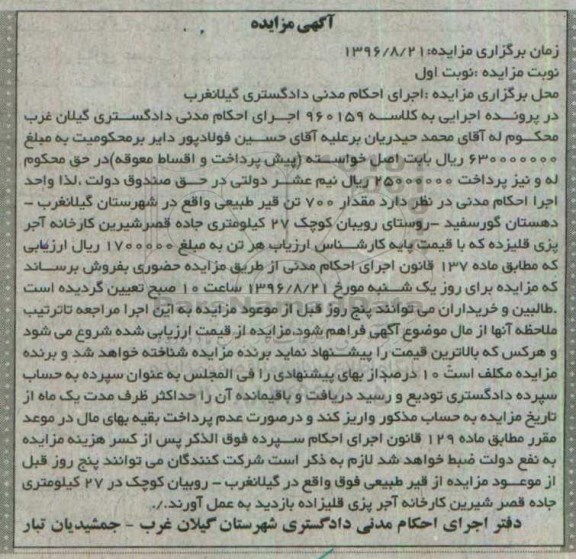 آگهی مزایده
زمان برگزاری مزایده:۱۳۹۶/۸/۲۱
نوبت مزایده :نوبت اول
محل برگزاری مزایده :اجرای احکام مدنی دادگستری گیلانغرب
در پرونده اجرایی به کلاسه ۹۶۰۱۵۹ اجرای احکام مدنی دادگستری گیلان غرب
محکوم له آقای محمد حیدریان برعلیه آقای حسین فولادپور دایر برمحکومیت به مبلغ
۶۳۰۰۰۰۰۰۰ ریال بابت اصل خواسته (پیش پرداخت و اقساط معوقه)در حق محکوم
له و نیز پرداخت ۲۵۰۰۰۰۰۰ ریال نیم عشر دولتی در حق صندوق دولت ،لذا واحد
اجرا احکام مدنی در نظر دارد مقدار ۷۰۰ تن قیر طبیعی واقع در شهرستان گیلانغرب –
دهستان گورسفید –روستای رویبان کوچک ۲۷ کیلومتری جاده قصرشیرین کارخانه آجر
پزی قلیزده که با قیمت پایه کارشناس ارزیاب هر تن به مبلغ ۱۷۰۰۰۰۰ ریال ارزیابی
که مطابق ماده ۱۳۷ قانون اجرای احکام مدنی از طریق مزایده حضوری بفروش برساند
که مزایده برای روز یک شنبه مورخ ۱۳۹۶/۸/۲۱ ساعت ۱۰ صبح تعیین گردیده است
.طالبین و خریداران می توانند پنج روز قبل از موعود مزایده به این اجرا مراجعه تاترتیب
ملاحظه آنها از مال موضوع آگهی فراهم شود،مزایده از قیمت ارزیابی شده شروع می شود
و هرکس که بالاترین قیمت را پیشنهاد نماید برنده مزایده شناخته خواهد شد و برنده
مزایده مکلف است ۱۰ درصداز بهای پیشنهادی را فی المجلس به عنوان سپرده به حساب
سپرده دادگستری تودیع و رسید دریافت و باقیمانده آن را حداکثر ظرف مدت یک ماه از
تاریخ مزایده به حساب مذکور واریز کند و درصورت عدم پرداخت بقیه بهای مال در موعد
مقرر مطابق ماده ۱۲۹ قانون اجرای احکام سپرده فوق الذکر پس از کسر هزینه مزایده
به نفع دولت ضبط خواهد شد لازم به ذکر است شرکت کنندگان می توانند پنج روز قبل
از موعود مزایده از قیر طبیعی فوق واقع در گیلانغرب – روبیان کوچک در ۲۷ کیلومتری
جاده قصر شیرین کارخانه آجر پزی قلیزاده بازدید به عمل آورند./.
دفتر اجرای احکام مدنی دادگستری شهرستان گیلان غرب – جمشیدیان تبار